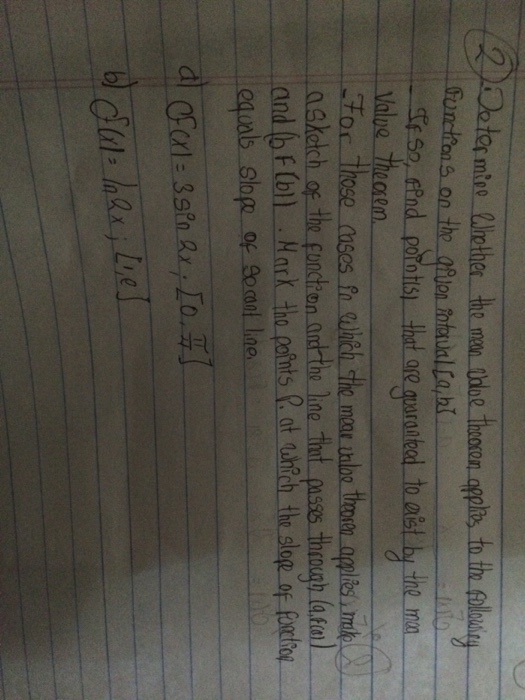 2 Determine Whether the mean value theorem applies to the following
functions on the given interval [a,b]
- If so, find point(s) that are guaranteed to exist by the mea
value theorem.
- For those cases in which the mean value theorem applies, make
a sketch of the function and the line that passes through (a,f(a))
and (b f(b)). Mark the points P. at which the slope of function
equals slope of secant line.
a) f(x) = 3 sin 2x ; [0, π/4]
b) f(x) = ln 2x ; [1,e]